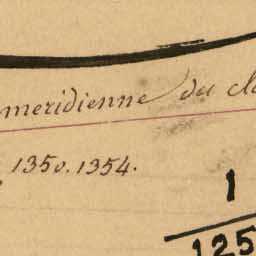 meridienne du
1350. 1354.
1
125